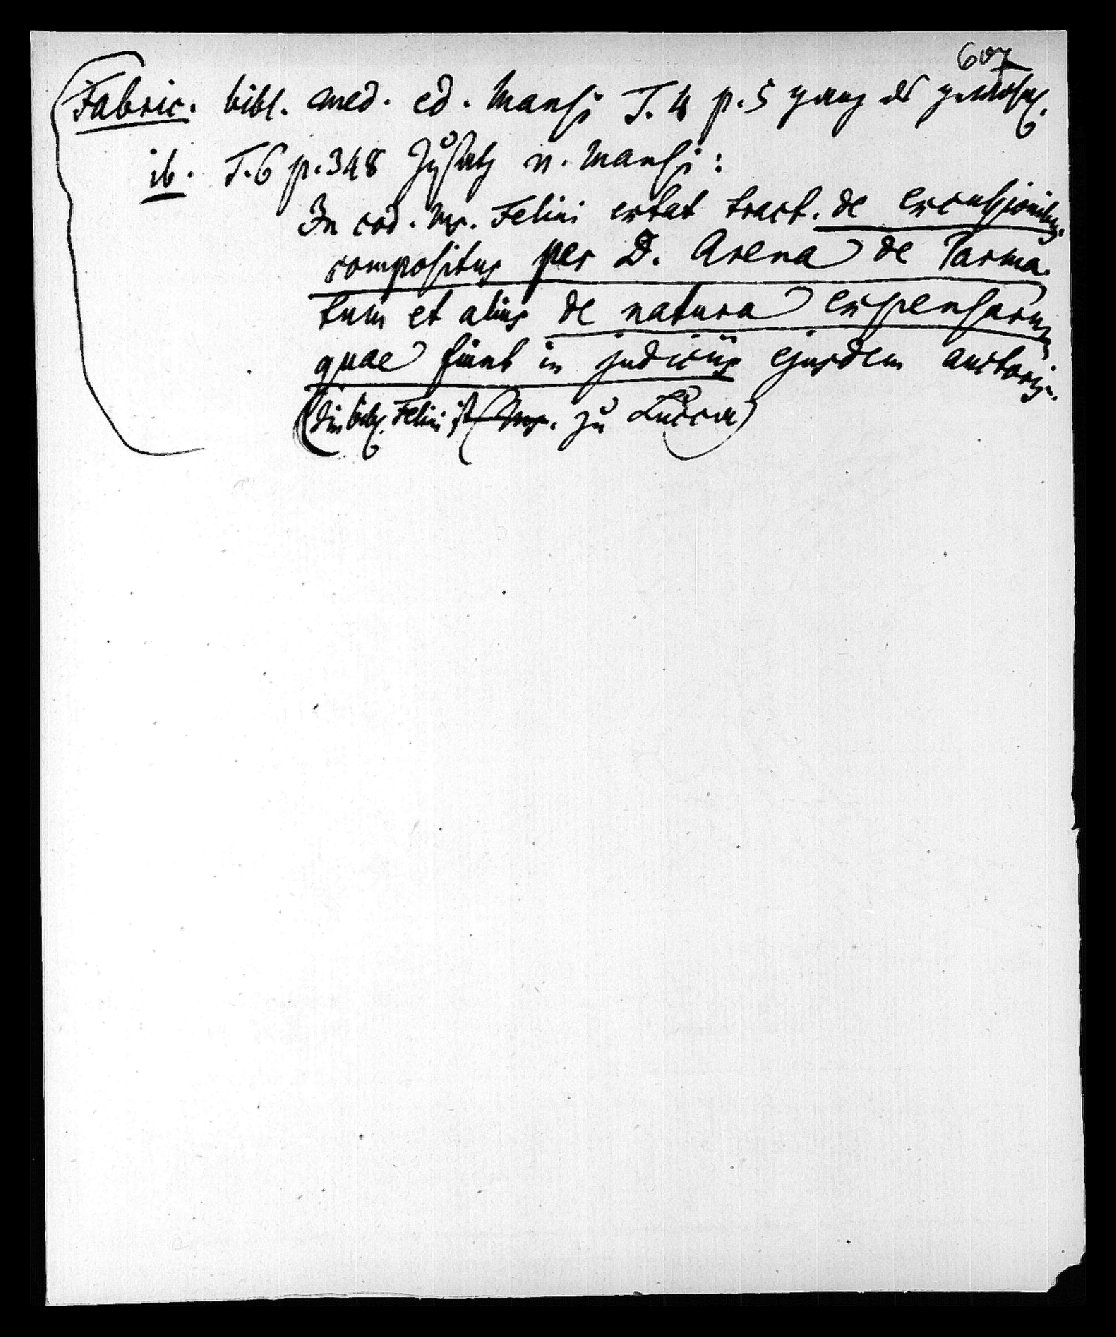 607
Fabric. bibl. med. ed. Mansi T. 4 p. 5 ganz
ib. T. 6 p. 348 Zusatz v. Mansi:
In cod. Ms. Felini extat tract. de excussionibus
compositus per D. Arena de Parma
tum et alius de natura expensarum
quae fiunt in judiciis ejusdem auctoris.
(die bibl. Felini ist zu Lucca)